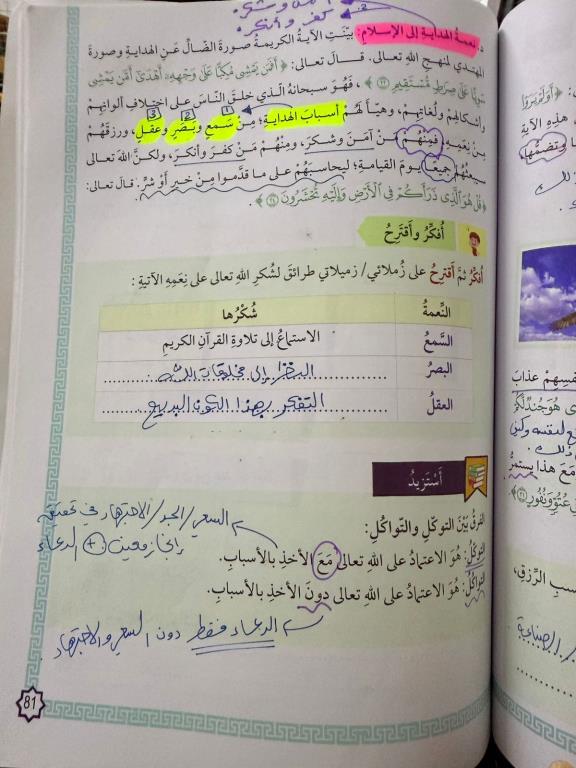 آمن وشكر
كفر وأنكر
د. نعمة الهدايةِ إلى الإسلامِ: بيّنَتِ الآيةُ الكريمةُ صورةَ الضّالِّ عَنِ الهدايةِ وصورةَ
المهتدي لمنهجِ اللهِ تعالى. قالَ تعالى: ﴿أَفَمَن يَمْشِي مُكِبًّا عَلَىٰ وَجْهِهِ أَهْدَىٰ أَمَّن يَمْشِي
سَوِيًّا عَلَىٰ صِرَاطٍ مُّسْتَقِيمٍ ٢٢﴾، فَهُوَ سبحانهُ الّذي خلقَ النّاسَ على اختلافِ ألوانِهِمْ
1 2 3
وأشكالِهِمْ ولُغاتِهِمْ، وهيّأَ لَهُمْ أسبابَ الهدايةِ؛ مِنْ سَمعٍ وبَصَرٍ وعقلٍ، ورزقَهُمْ
مِن نِعَمِهِ، فمِنْهُمْ مَنْ آمَنَ وشكرَ، ومِنْهُمْ مَنْ كفرَ وأنكرَ، ولكنَّ اللهَ تعالى
سيبعثُهُمْ جميعًا يومَ القيامةِ؛ ليحاسبَهُمْ على ما قدَّموا مِنْ خيرٍ أوْ شرٍّ. قالَ تعالى:
﴿قُلْ هُوَ الَّذِي ذَرَأَكُمْ فِي الْأَرْضِ وَإِلَيْهِ تُحْشَرُونَ ٢٤﴾.
أُفكِّرُ وأَقترِحُ
أُفكِّرُ ثمَّ أقترحُ على زُملائي/ زميلاتي طرائقَ لشُكرِ اللهِ تعالى على نِعَمِهِ الآتيةِ:
النِّعمةُ شُكْرُها
السَّمعُ الاستماعُ إلى تلاوةِ القرآنِ الكريمِ
البصرُ النظر إلى مخلوقات الله
العقلُ التفكر بهذا الكون البديع
أَسْتَزيدُ
السعي/الجد/الاجتهاد في تحقيق
+ الدعاء
الفرقُ بَيْنَ التوكّلِ والتّواكُلِ:
التوكّلُ: هُوَ الاعتمادُ على اللهِ تعالى مَعَ الأخذِ بالأسبابِ.
التواكُلُ: هُوَ الاعتمادُ على اللهِ تعالى دونَ الأخذِ بالأسبابِ.
الدعاء فقط دون السعي والاجتهاد
81
﴿أَوَلَمْ يَرَوْا
هذِهِ الآيةِ
وتضمُّها
نفسِهِمْ عذابَ
هُوَ جُندٌ لَّكُمْ
مَعَ هذا يستمرُّ
عُتُوٍّ وَنُفُورٍ ٢١﴾.
سببِ الرِّزقِ،